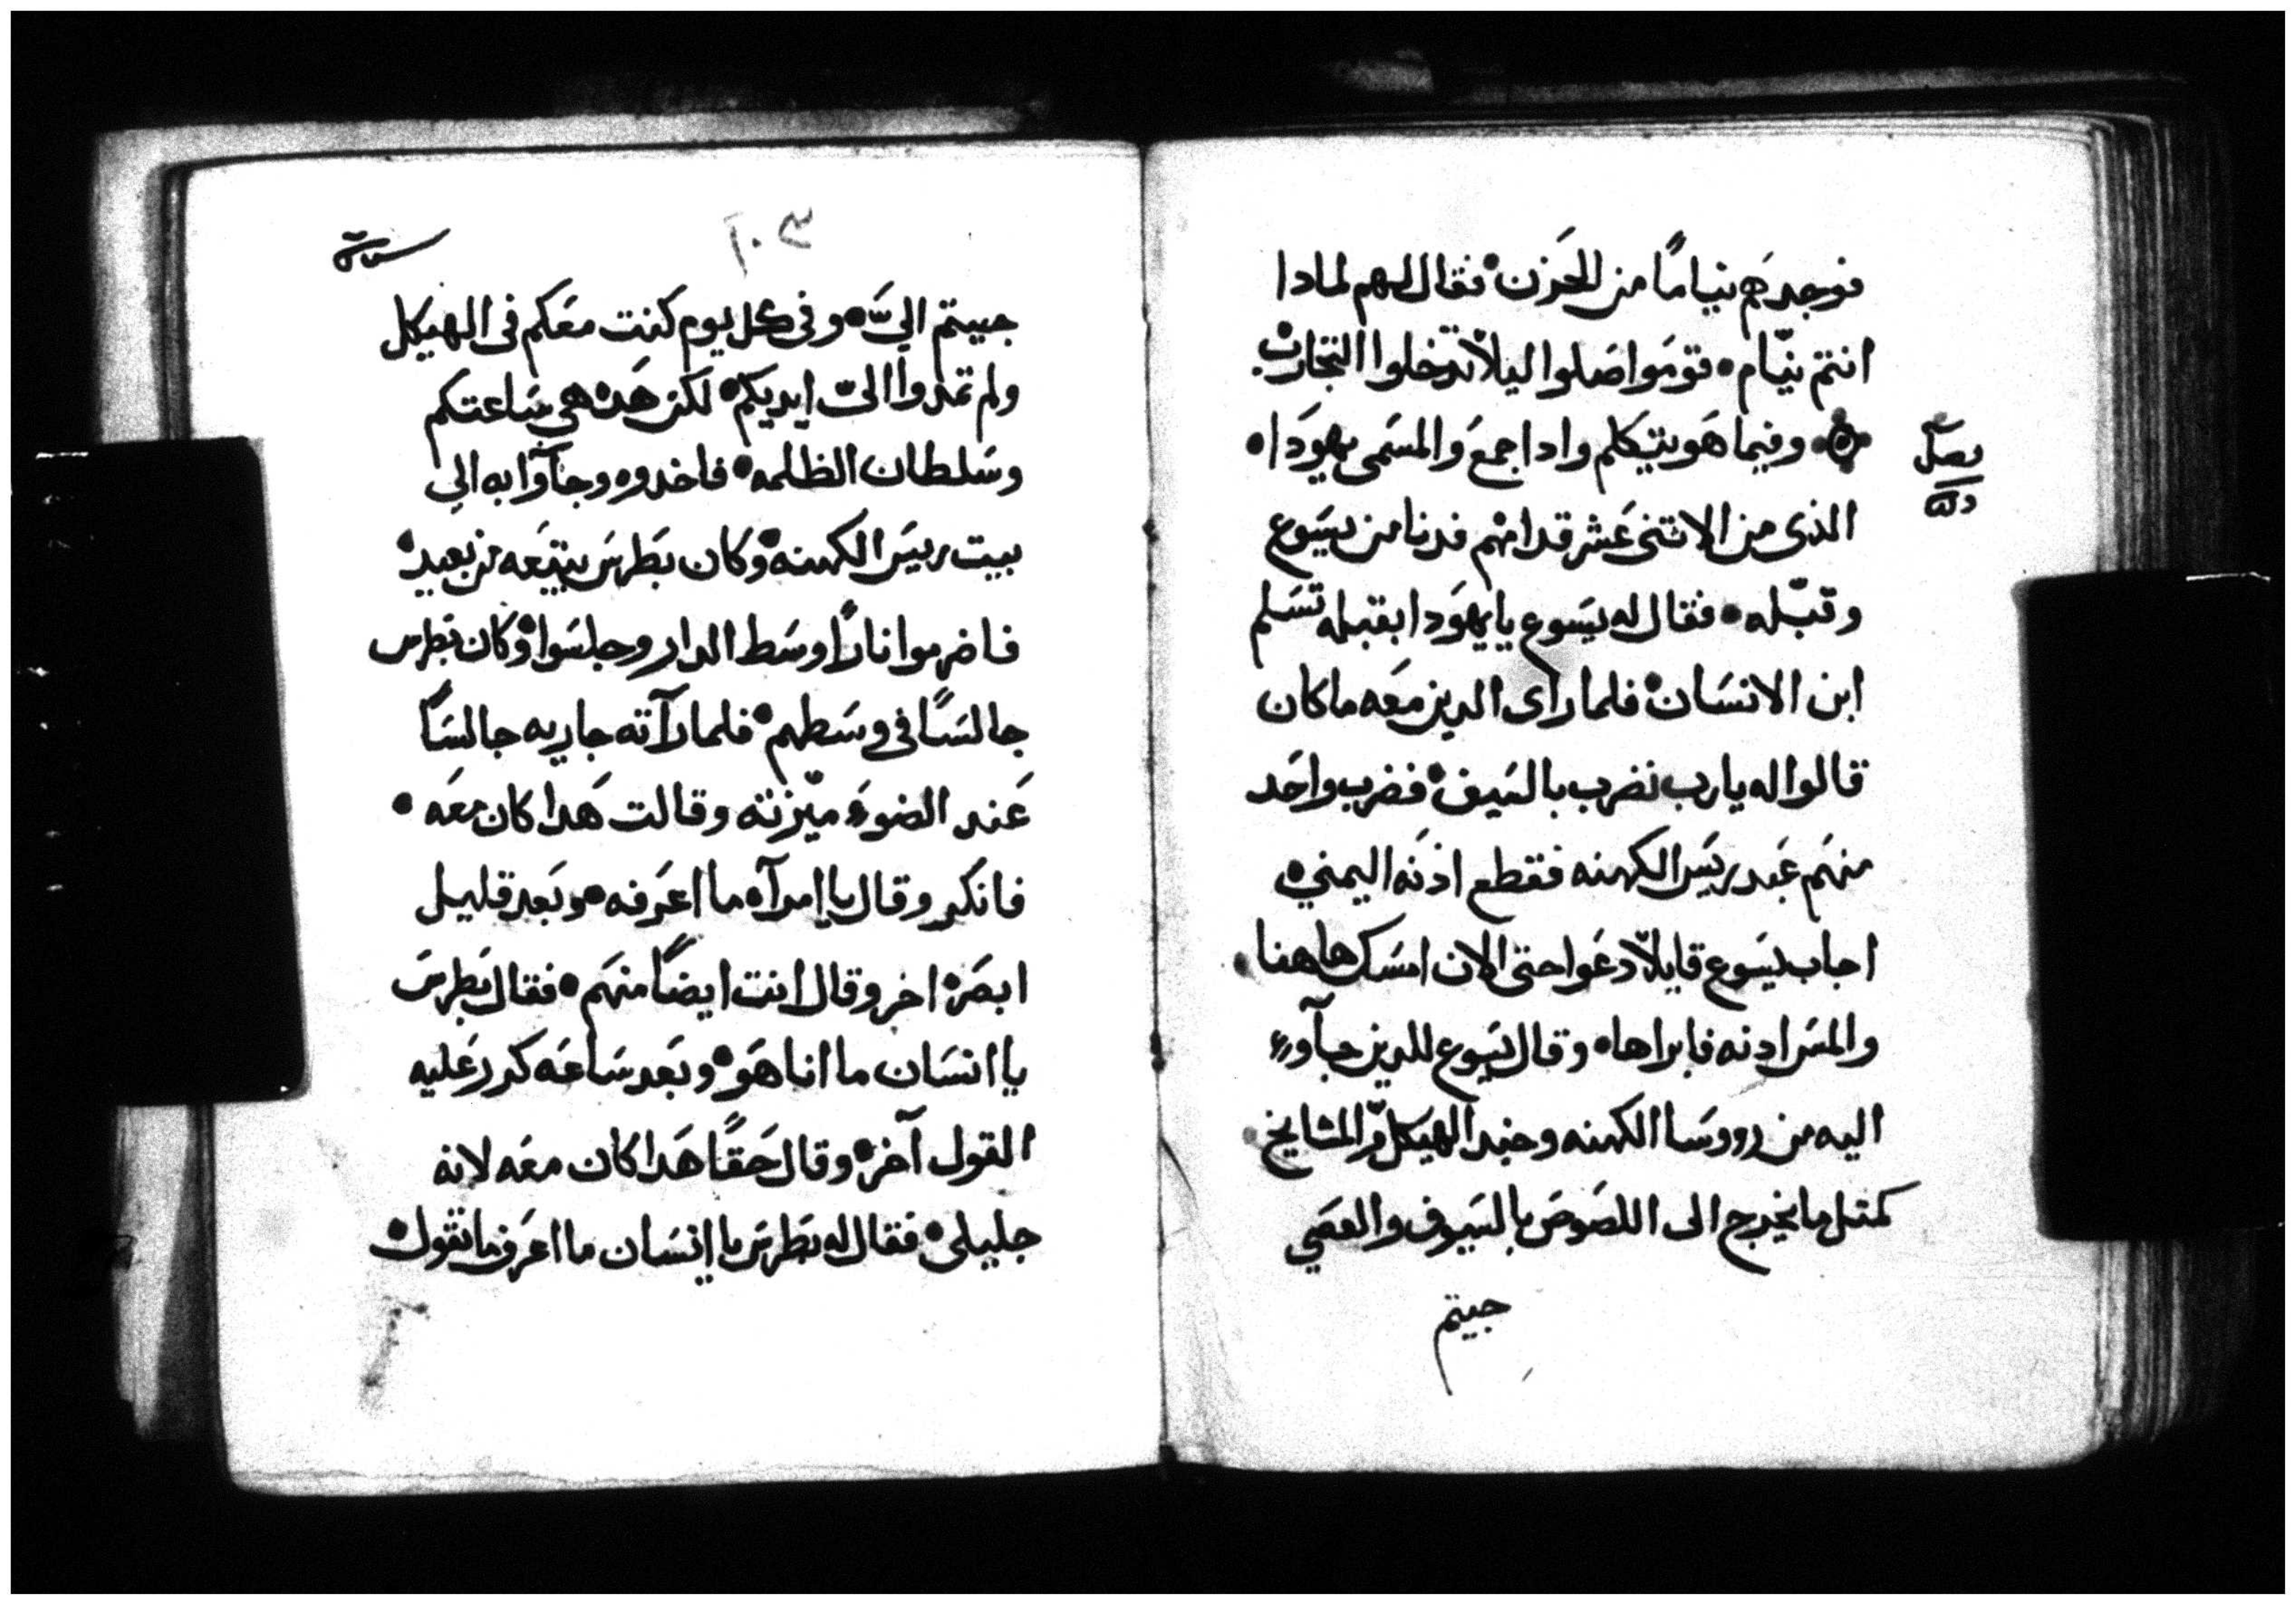 فوجدهم نياماً من الحزن • فقال لهم لمادا
انتم نيّام • فقوموا صلوا ليلاّ تدخلوا التجارب •
وفيما هو يتكلم وادا جمع والمسمى يهودا •
الذى من الاتنى عشر قدامهم فدنا من يسوع
وقبّله • فقال له يسوع يا يهودا بقبله تسلم
ابن الانسان • فلما راى الدين معه ما كان
قالوا له يا رب نضرب بالسيف • فضرب واحد
منهم عبد رييس الكهنه فقطع اذنه اليمني •
اجاب يسوع قايلاً دعوا حتى الان امسك هاهنا •
والمس ادنه فابراها • وقال يسوع للدين جآوء
اليه من رووسا الكهنه وجند الهيكل والمشايخ •
كمتل ما يخرج الى اللصوص بالسيوف والعصي
جييتم
١٠٣
جييتم اليّ • وفى كل يوم كنت معكم فى الهيكل
ولم تمدوا اليّ ايديكم • لكن هده هي ساعتكم
وسلطان الظلمه • فاخدوه وجآوا به الي
بيت رييس الكهنه • وكان بطرس يتبعه من بعيد •
فاضرموا ناراً وسط الدار وجلسوا • وكان بطرس
جالساً في وسطهم • فلما رآته جاريه جالساً
عند الضوء ميّزته وقالت هدا كان معه •
فانكر وقال يا امرآه ما اعرفه • وبعد قليل
ابصره اخر وقال انت ايضاً منهم • فقال بطرس
يا انسان ما انا هو • وبعد ساعه كرر عليه
القول آخر • وقال حقاً هدا كان معه لانه
جليلى • فقال له بطرس يا انسان ما اعرف ما تقول •